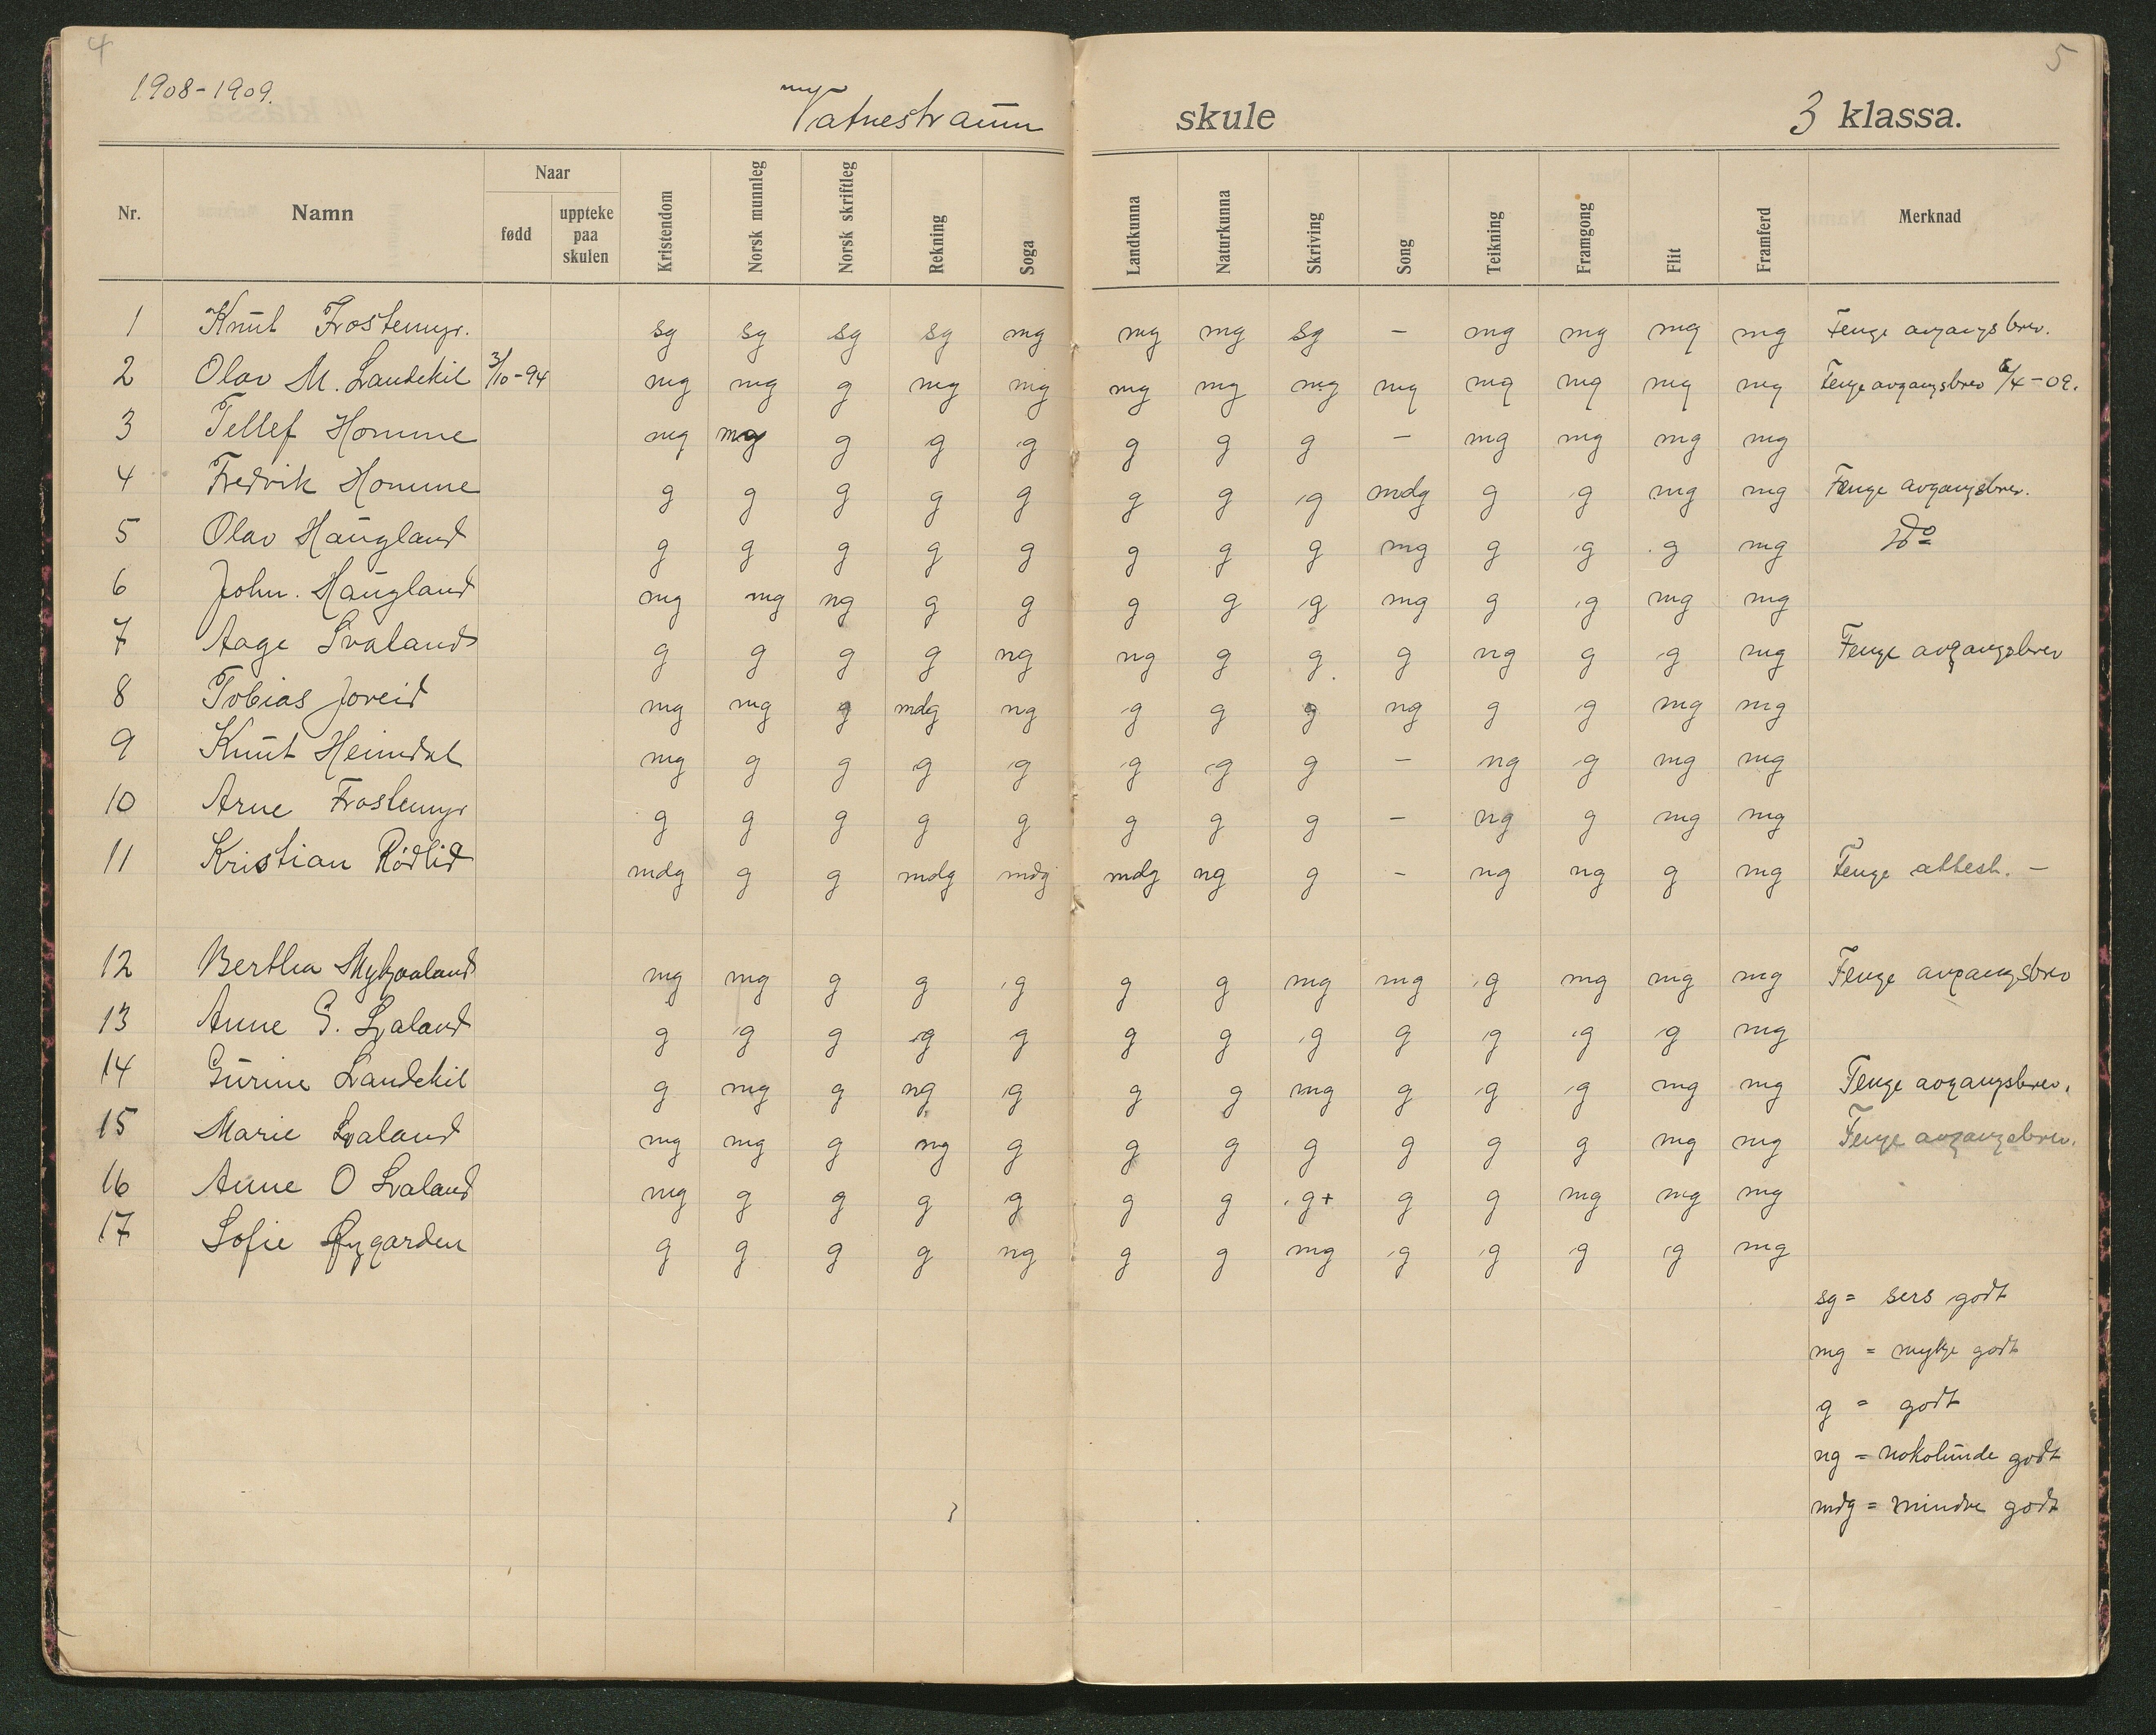 4
5
1908-1909.
Vatnestraum skule 3 klassa.
Nr. Namn Naar Kristendom Norsk munnleg Norsk skriftleg Rekning Soga Landkunna Naturkunna Skriving Song Teikning Framgong Flit Framferd Merknad
fødd uppteke paa skulen
1 Knut Frostemyr. sg sg sg sg mg mg mg sg - mg mg mg mg Fenge avgangsbrev.
2 Olav M. Landekil 3/10-94 mg mg g mg mg mg mg mg mg mg mg mg mg Fenge avgangsbrev 6/4-09.
3 Tellef Homme mg mg g g g g g g - mg mg mg mg
4 Fredrik Homme g g g g g g g g mdg g g mg mg Fenge avgangsbrev.
5 Olav Haugland g g g g g g g g mg g g g mg Do
6 John. Haugland mg mg ng g g g g g mg g g mg mg
7 Aage Svaland g g g g ng ng g g g ng g g mg Fenge avgangsbrev
8 Tobias Joreid mg mg g mdg ng g g g ng g g mg mg
9 Knut Heimdal mg g g g g g g g - ng g mg mg
10 Arne Frostemyr g g g g g g g g - ng g mg mg
11 Kristian Rödlid mdg g g mdg mdg mdg ng g - ng ng g mg Fenge attest. -
12 Bertha Mykjaaland mg mg g g g g g mg mg g mg mg mg Fenge avgangsbrev
13 Anne G. Svaland g g g g g g g g g g g g mg
14 Gurine Landekil g mg g ng g g g mg g g g mg mg Fenge avgangsbrev.
15 Marie Svaland mg mg g ng g g g g g g g mg mg Fenge avgangsbrev.
16 Anne O Svaland mg g g g g g g g+ g g mg mg mg
17 Sofie Øygarden g g g g ng g g mg g g g g mg
sg = sers godt
mg = mykje godt
g = godt
ng = nokolunde godt
mdg = mindre godt